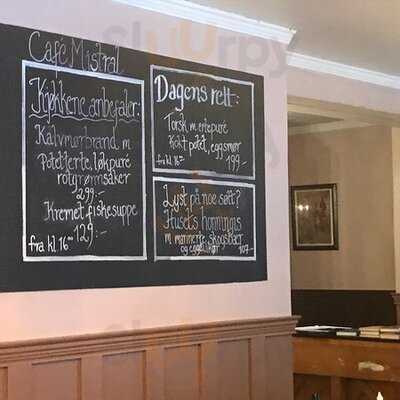 Café Mistral
Kjøkkene anbefaler:
Kalvmørbrand m
potetterte, løkpuré
rotgrønnsaker
299:-
Kremet fiskesuppe
129:-
fra kl. 16⁰⁰
Dagens rett:
Torsk m ertepuré
Kokt potet, eggsmør
fra kl. 16⁰⁰ 199:-
Lyst på noe søtt?
Husets honningis
m mannerte skogsbær
og eggelikør 107:-